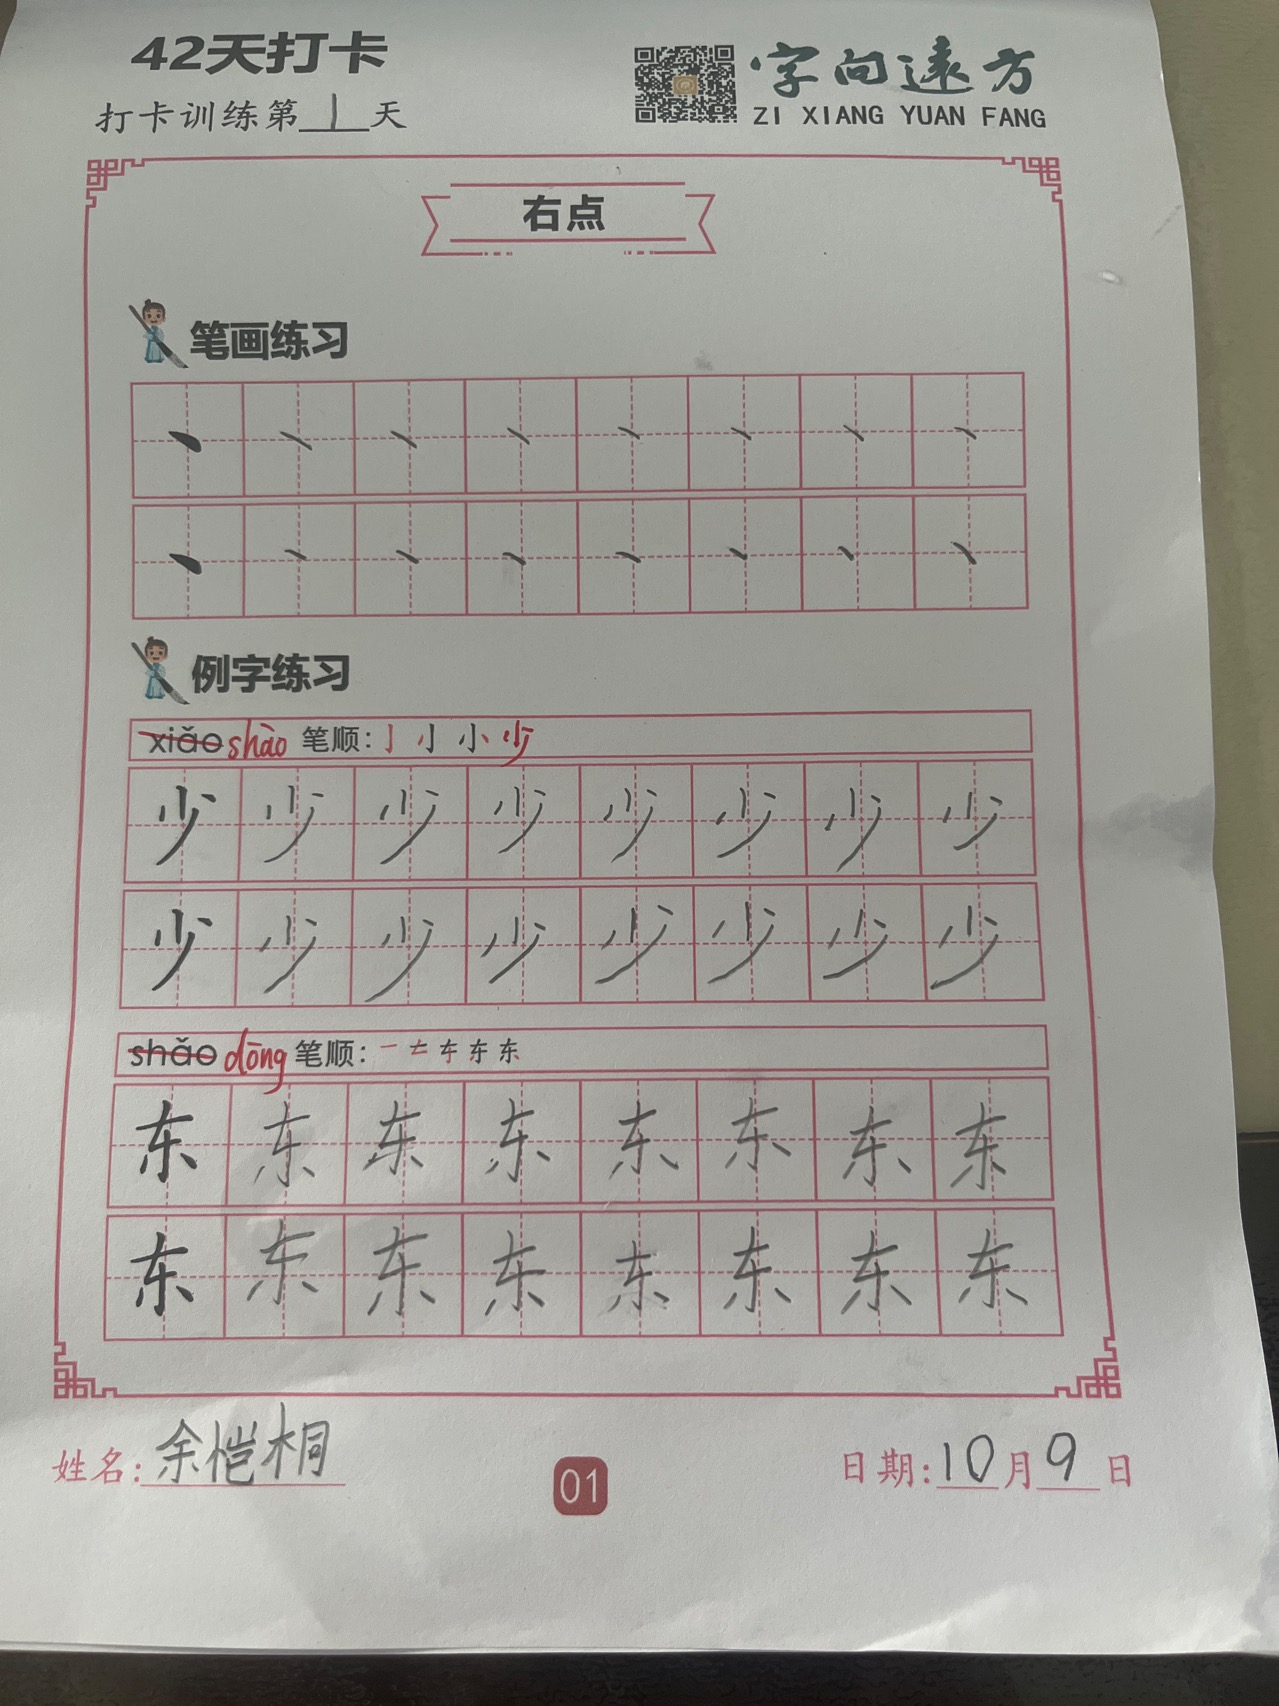 42天打卡
打卡训练第1天
字向遠方
ZI XIANG YUAN FANG
右点
笔画练习
丶 丶 丶 丶 丶 丶 丶 丶
丶 丶 丶 丶 丶 丶 丶 丶
例字练习
xiǎo shào 笔顺: 亅 小 小 少
少 少 少 少 少 少 少 少
少 少 少 少 少 少 少 少
shǎo dōng 笔顺: 一 𠂇 车 东 东
东 东 东 东 东 东 东 东
东 东 东 东 东 东 东 东
姓名: 余恺桐
01
日期: 10月9日